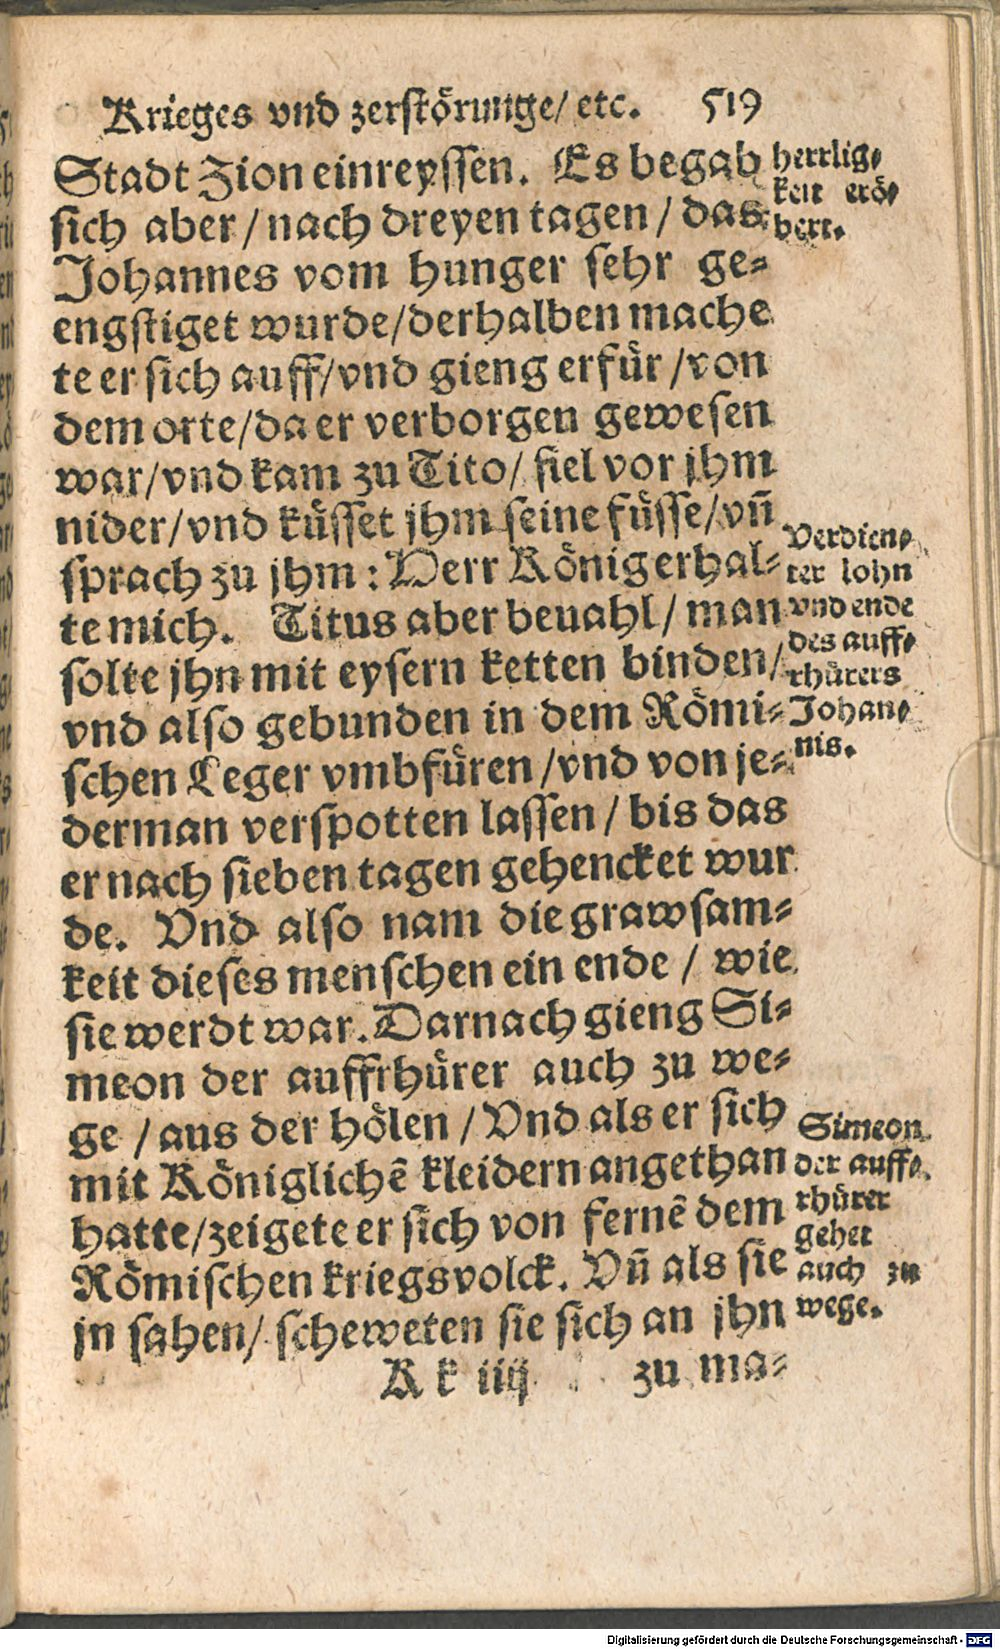 Krieges vnd zerstörunge/ etc. 519
Stadt Zion einreyssen. Es begab
sich aber/ nach dreyen tagen/ das
Johannes vom hunger sehr ge-
engstiget wurde/derhalben mache
te er sich auff/vnd gieng erfür/von
dem orte/da er verborgen gewesen
war/vnd kam zu Tito/ fiel vor jhm
nider/vnd küsset jhm seine füsse/vñ
sprach zu jhm: Herr König erhal-
te mich. Titus aber beuahl/ man
solte jhn mit eysern ketten binden/
vnd also gebunden in dem Römi-
schen Leger vmbfüren/vnd von je-
derman verspotten lassen/ bis das
er nach sieben tagen gehencket wur
de. Vnd also nam die grawsam-
keit dieses menschen ein ende/ wie
sie werdt war. Darnach gieng Si-
meon der auffrhürer auch zu we-
ge/ aus der hölen/ Vnd als er sich
mit Königlichẽ kleidern angethan
hatte/zeigete er sich von fernẽ dem
Römischen kriegsvolck. Vñ als sie
jn sahen/ scheweten sie sich an jhn
K k iiij zu ma-
herrlig-
keit erö-
bert.
Verdien-
ter lohn
vnd ende
des auff-
rhürers
Johan-
nis.
Simeon
der auff-
rhürer
gehet
auch zu
wege.
Digitalisierung gefördert durch die Deutsche Forschungsgemeinschaft - DFG